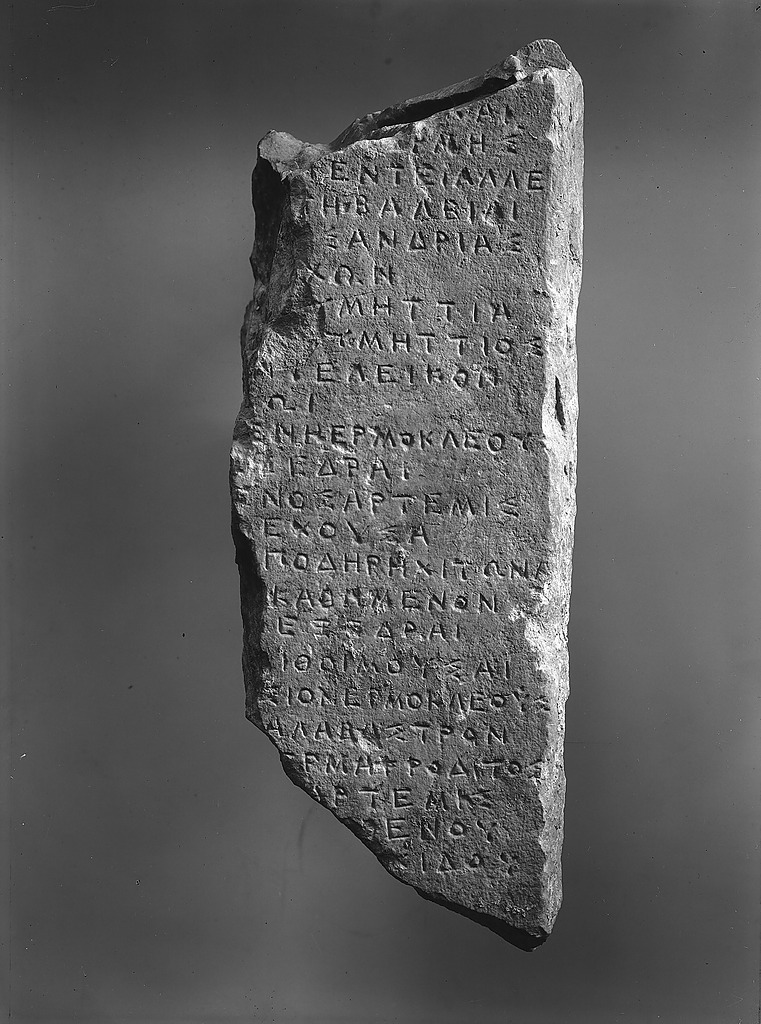 ΑΙ
ΜΗΣ
ΕΝΤΕΙΑΛΛΕ
ΤΗΒΑΛΒΙΑΙ
ΞΑΝΔΡΙΑΣ
ΧΩΝ
ΥΜΗΤΤΙΑ
ΥΜΗΤΤΙΟΣ
ΝΤΕΛΕΙΚΟΝ
ΩΙ
ΕΝΗΕΡΜΟΚΛΕΟΥΣ
ΕΔΡΑΙ
ΝΟΣΑΡΤΕΜΙΣ
ΕΧΟΥΣΑ
ΠΟΔΗΡΗΧΙΤΩΝΑ
ΚΑΘΗΜΕΝΟΝ
ΕΞΕΔΡΑΙ
ΛΙΘΟΙΜΟΥΣΑΙ
ΣΙΟΝΕΡΜΟΚΛΕΟΥΣ
ΑΛΑΒΑΣΤΡΟΝ
ΕΡΜΑΦΡΟΔΙΤΟΣ
ΑΡΤΕΜΙΣ
ΕΝΟΥ
ΙΔΟΥ